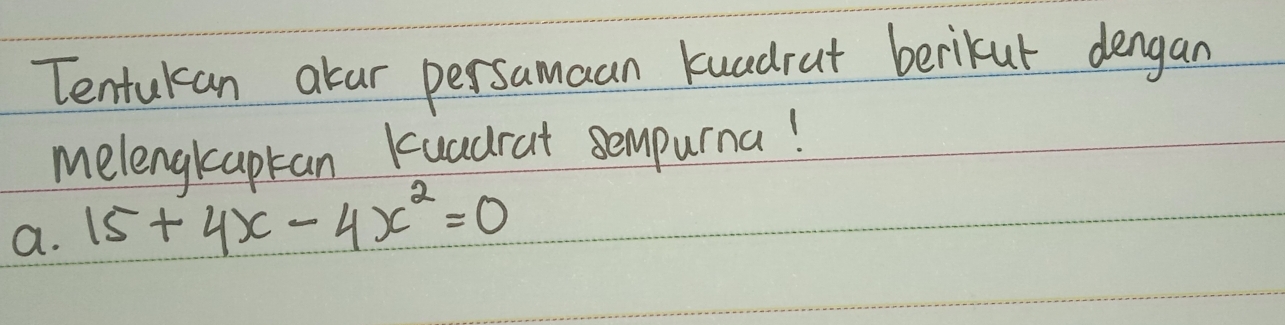 Tentukan akar persamaan kuadrat berikut dengan
melengkapkan kuadrat sempurna!
a. 15 + 4x - 4x² = 0